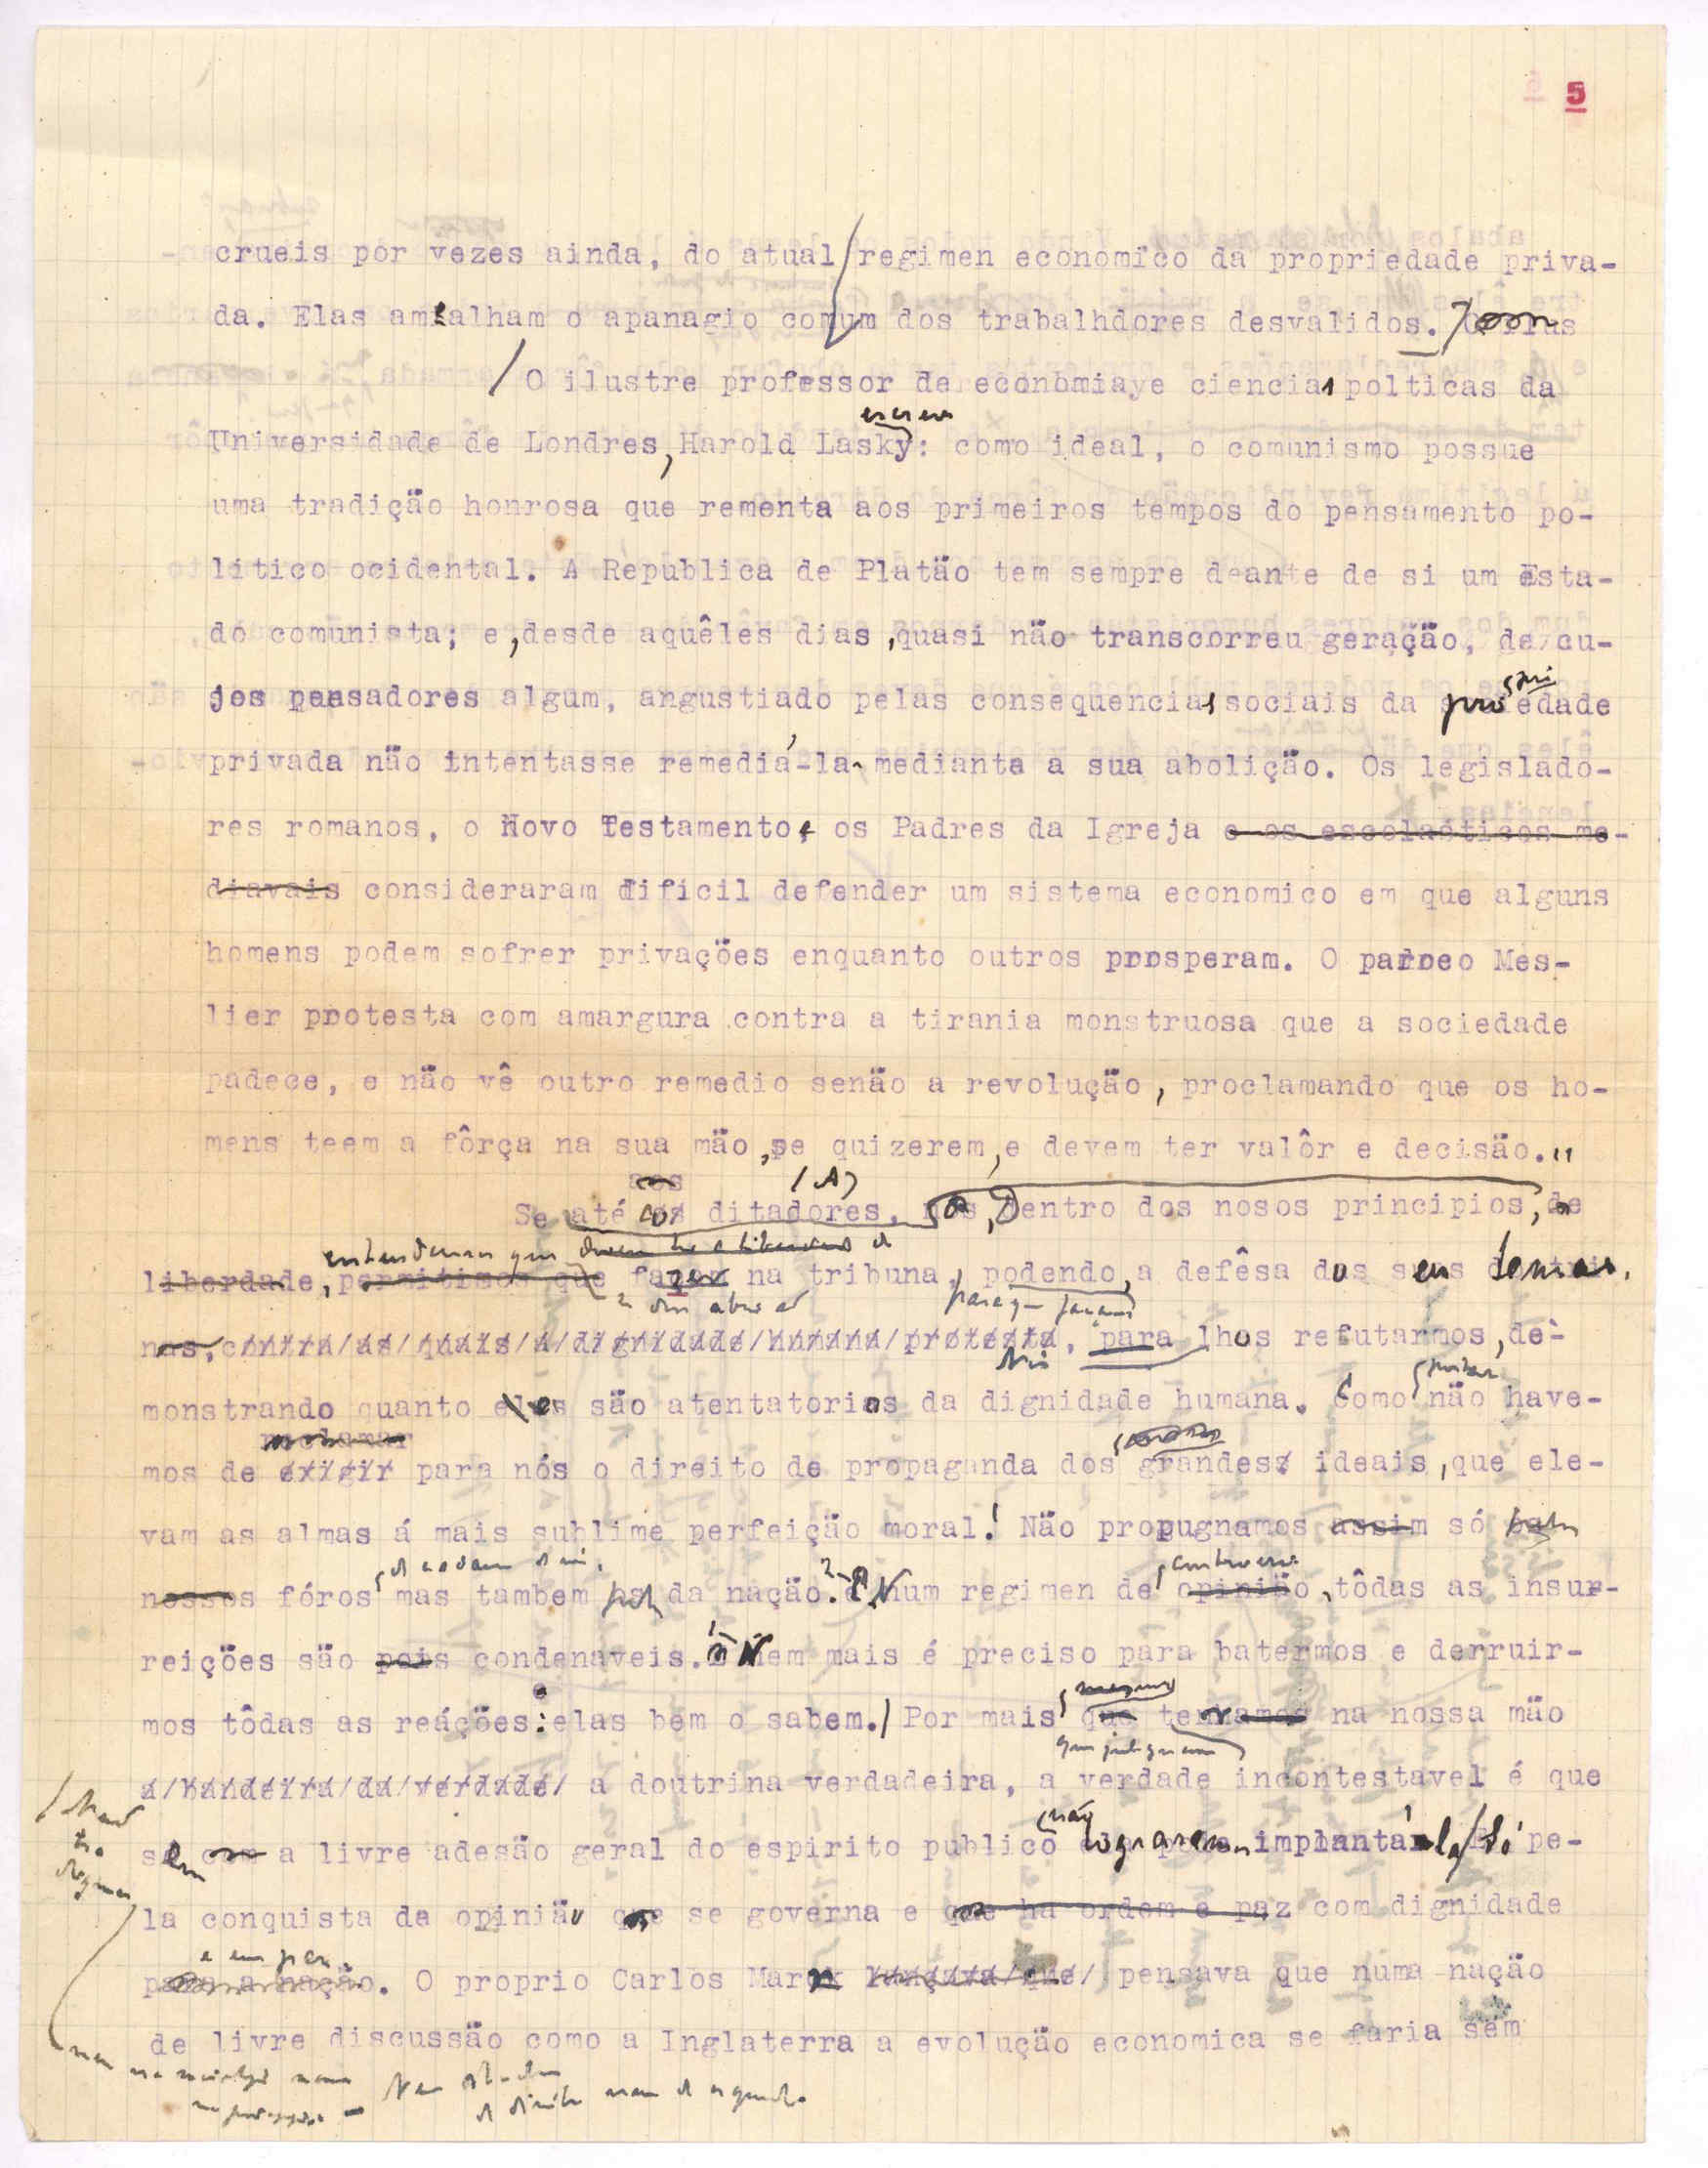 5
crueis por vezes ainda, do atual regimen economico da propriedade priva-
da. Elas amealham o apanagio comum dos trabalhdores desvalidos.
O ilustre professor de economia e ciencias polticas da
escreve
Universidade de Londres, Harold Lasky: como ideal, o comunismo possue
uma tradição honrosa que rementa aos primeiros tempos do pensamento po-
litico ocidental. A Republica de Platão tem sempre deante de si um Esta-
do comunista; e, desde aquêles dias, quasi não transcorreu geração, de cu-
jos pensadores algum, angustiado pelas consequencias sociais da propriedade
privada não intentasse remediá-la medianta a sua abolição. Os legislado-
res romanos, o Novo Testamento e os Padres da Igreja e os escolaóticos me-
diavais consideraram dificil defender um sistema economico em que alguns
homens podem sofrer privações enquanto outros prosperam. O paroco Mes-
lier protesta com amargura contra a tirania monstruosa que a sociedade
padece, e não vê outro remedio senão a revolução, proclamando que os ho-
mens teem a fôrça na sua mão, se quizerem, e devem ter valôr e decisão."
aos
Se até os ditadores, nós, Dentro dos nosos principios, de
entendemos que devem ter a liberdade de
liberdade, permitimos que fazer na tribuna, podendo, a defêsa dos seus temas.
para que façam
nas, contra/as/quais/a/dignidade/humana/protesta, para lhos refutarmos, de-
monstrando quanto eles são atentatorios da dignidade humana. Como não have-
reclamar
mos de exigir para nós o direito de propaganda dos grandes ideais, que ele-
vam as almas á mais sublime perfeição moral! Não propugnamos assim só pelos
nossos fóros mas tambem pelos da nação. Num regimen de opinião, tôdas as insur-
controversia
reições são pois condenaveis. Nem mais é preciso para batermos e derruir-
mos tôdas as reáções: elas bem o sabem. Por mais que tenhamos na nossa mão
mesmo
que julguemos
a/bandeira/da/verdade/ a doutrina verdadeira, a verdade incontestavel é que
não
sem a livre adesão geral do espirito publico lograremos implantá-la. Só pe-
la conquista da opinião que se governa e que ha ordem e paz com dignidade
e em paz
para a nação. O proprio Carlos Marx pensava que numa nação
de livre discussão como a Inglaterra a evolução economica se faria sem